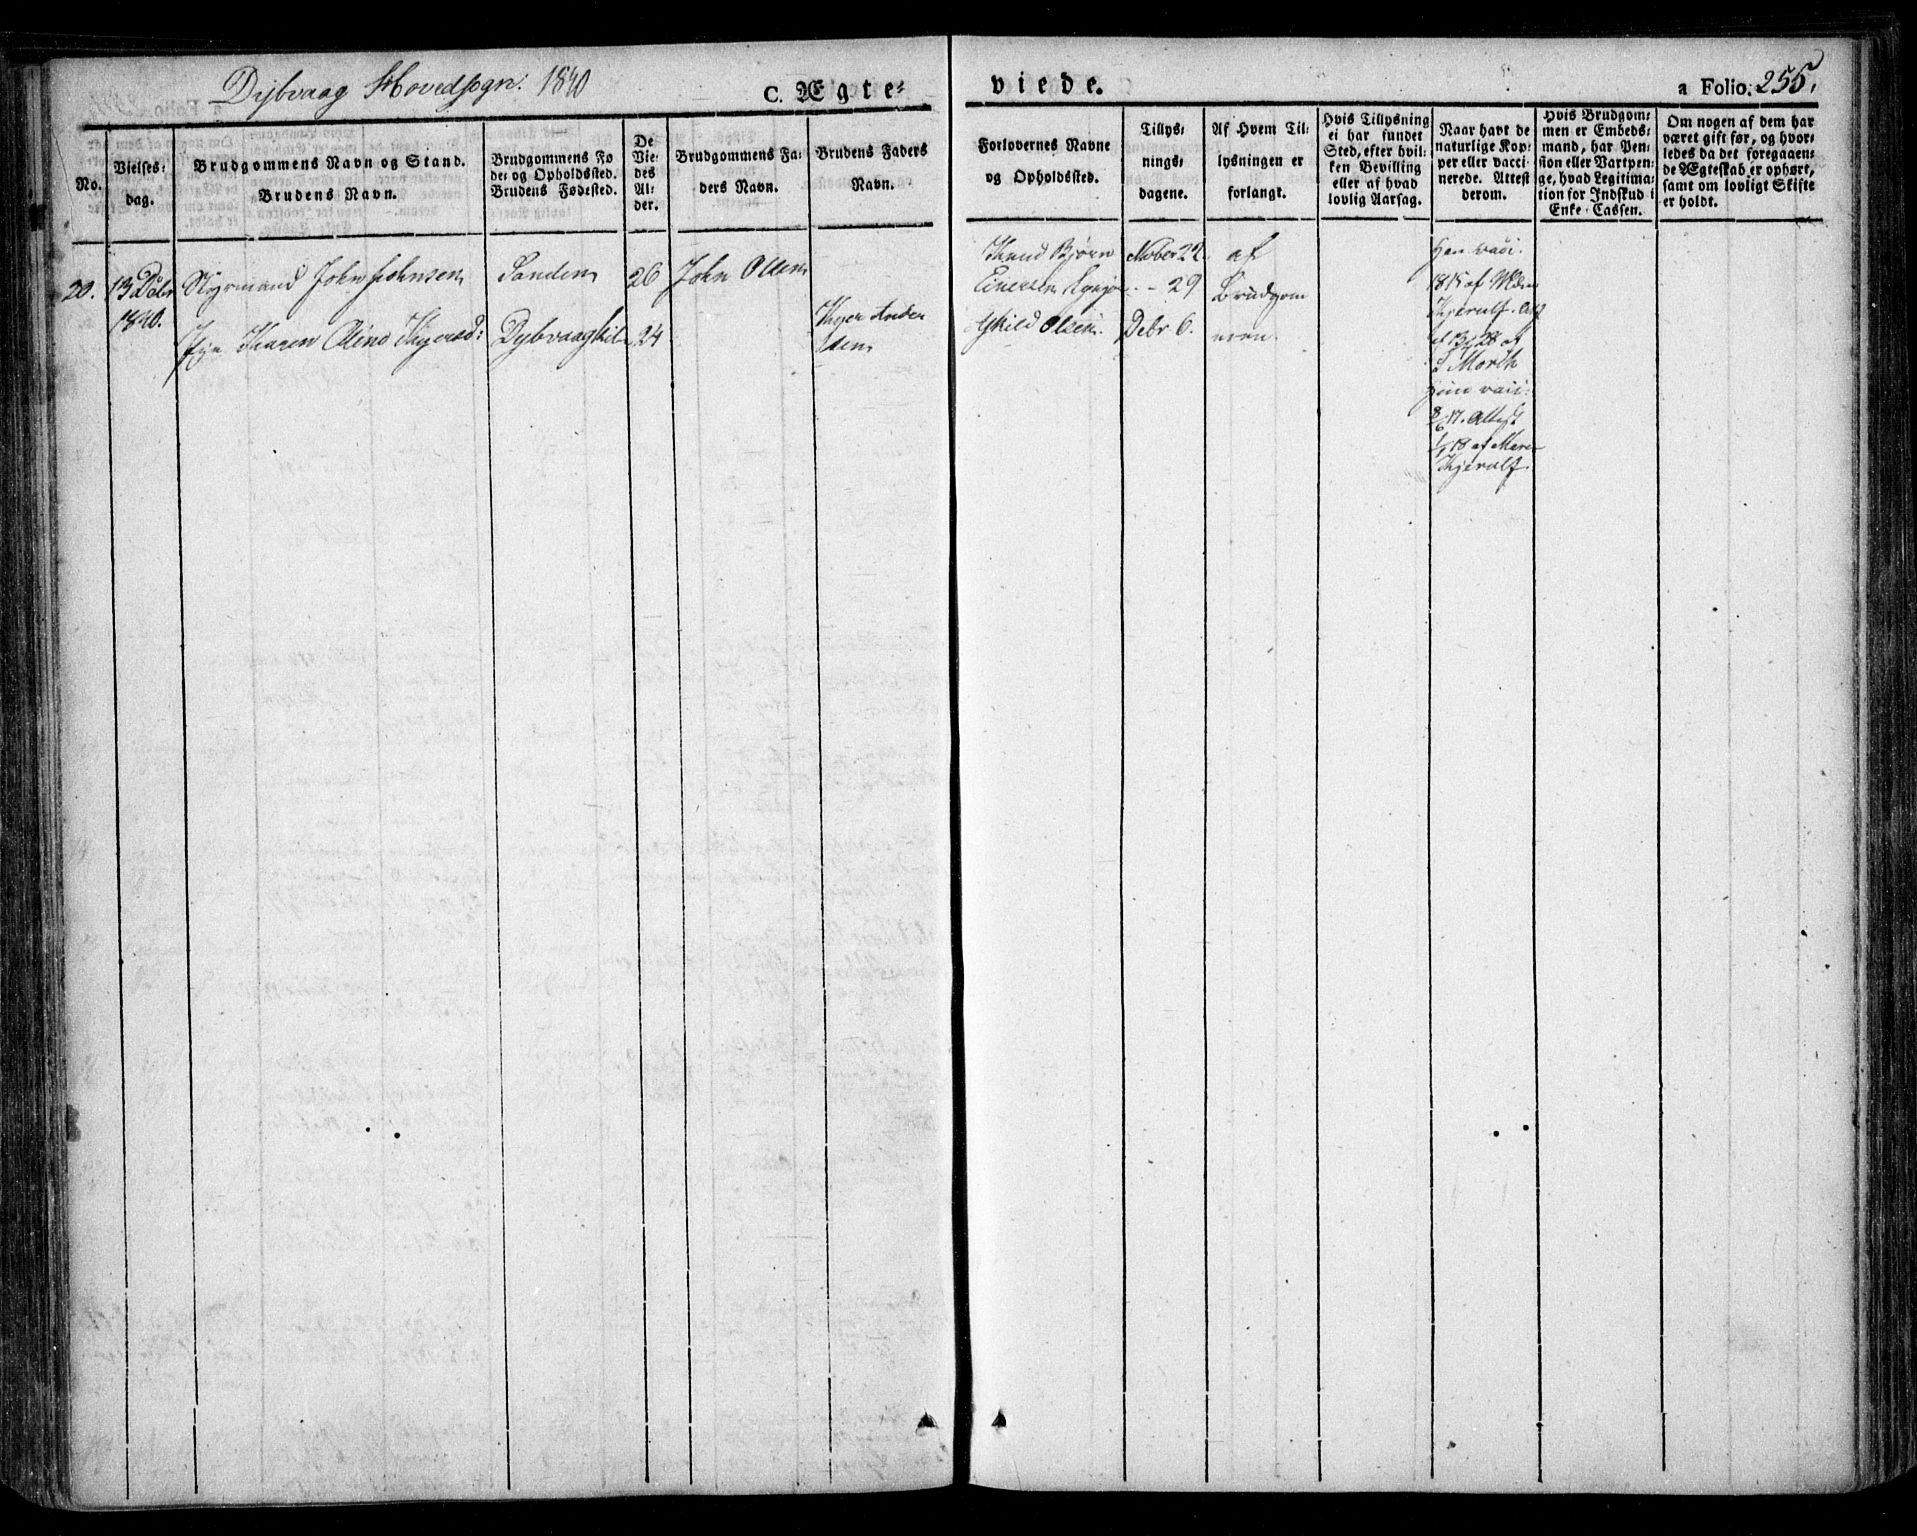 Dybvaag Hovedsogn: 1840
C. Ægte-
viede.
a Folio. 255.
No.
Vielses-
dag.
Brudgommens Navn og Stand.
Brudens Navn.
Brudgommens Fø
de- og Opholdssted.
Brudens Fødested.
De
Vie-
des
Al-
der.
Brudgommens Fa-
ders Navn.
Brudens Faders
Navn.
Forlovernes Navne
og Opholdssted.
Tillys-
nings-
dagene.
Af Hvem Til-
lysningen er
forlangt.
Hvis Tillysning
ei har fundet
Sted, efter hvil-
ken Bevilling
eller af hvad
lovlig Aarsag.
Naar havt de
naturlige Kop-
per eller vacci-
nerede. Attest
derom.
Hvis Brudgom-
men er Embeds-
mand, har Pen-
sion eller Vartpen-
ge, hvad Legitima-
tion for Indskud i
Enke-Cassen.
Om nogen af dem har
været gift før, og hvor-
ledes da det foregaaen-
de Ægteskab er ophørt,
samt om lovligt Skifte
er holdt.
20.
13 Debr
1840.
Styrmand John Johnsen
Pige Karen Oline
Sanden
Dybvaagkil
26
24
John Olsen
Ander
sen
Knud Bjørn
Eskild Olsen
Nober 22.
-- 29
Debr 6.
af
Brudgom
men
Han vacci.
1815 af
Kjerulf.
af
Morth
Hun vacci:
Attest
af
Kjerulf.